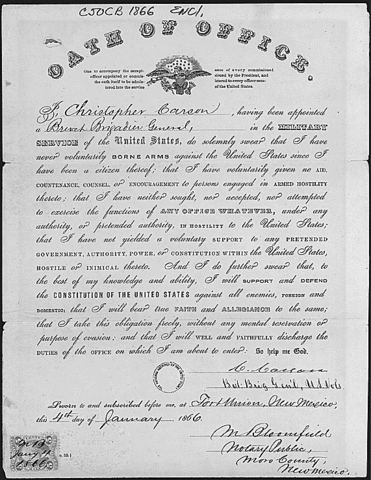 C50CB 1866 ENC1,
OATH OF OFFICE.
I, Christopher Carson, having been appointed
a Brevet Brigadier General, in the MILITARY
SERVICE of the United States, do solemnly swear that I have
never voluntarily BORNE ARMS against the United States since I
have been a citizen thereof; that I have voluntarily given no AID,
COUNTENANCE, COUNSEL, OR ENCOURAGEMENT to persons engaged in ARMED HOSTILITY
thereto; that I have neither sought, nor accepted, nor attempted
to exercise the functions of ANY OFFICE WHATEVER, under any
authority, or pretended authority, IN HOSTILITY to the United States;
that I have not yielded a voluntary SUPPORT to ANY PRETENDED
GOVERNMENT, AUTHORITY, POWER, OR CONSTITUTION WITHIN THE UNITED STATES,
HOSTILE OR INIMICAL thereto. And I do further swear that, to
the best of my knowledge and ability, I will SUPPORT AND DEFEND
THE CONSTITUTION OF THE UNITED STATES against all enemies, FOREIGN AND
DOMESTIC; that I will bear true FAITH and ALLEGIANCE to the same;
that I take this obligation freely, without any mental reservation
or purpose of evasion; and that I will WELL and FAITHFULLY discharge the
DUTIES OF THE OFFICE on which I am about to enter: So help me God.
C. Carson
Bvt. Brig. Genl. U.S. Vols
Sworn to and subscribed before me, at Fort Union, New Mexico,
this 4th day of January 1866.
M. Bloomfield
Notary Public,
Moro County,
New Mexico.